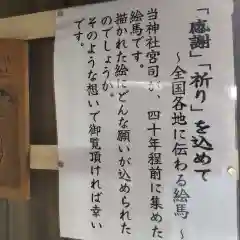 「感謝」「祈り」を込めて
～全国各地に伝わる絵馬～
当神社宮司が、四十年程前に集めた
絵馬です。
描かれた絵にどんな願いが込められた
のでしょうか。
そのような想いで御覧頂ければ幸い
です。